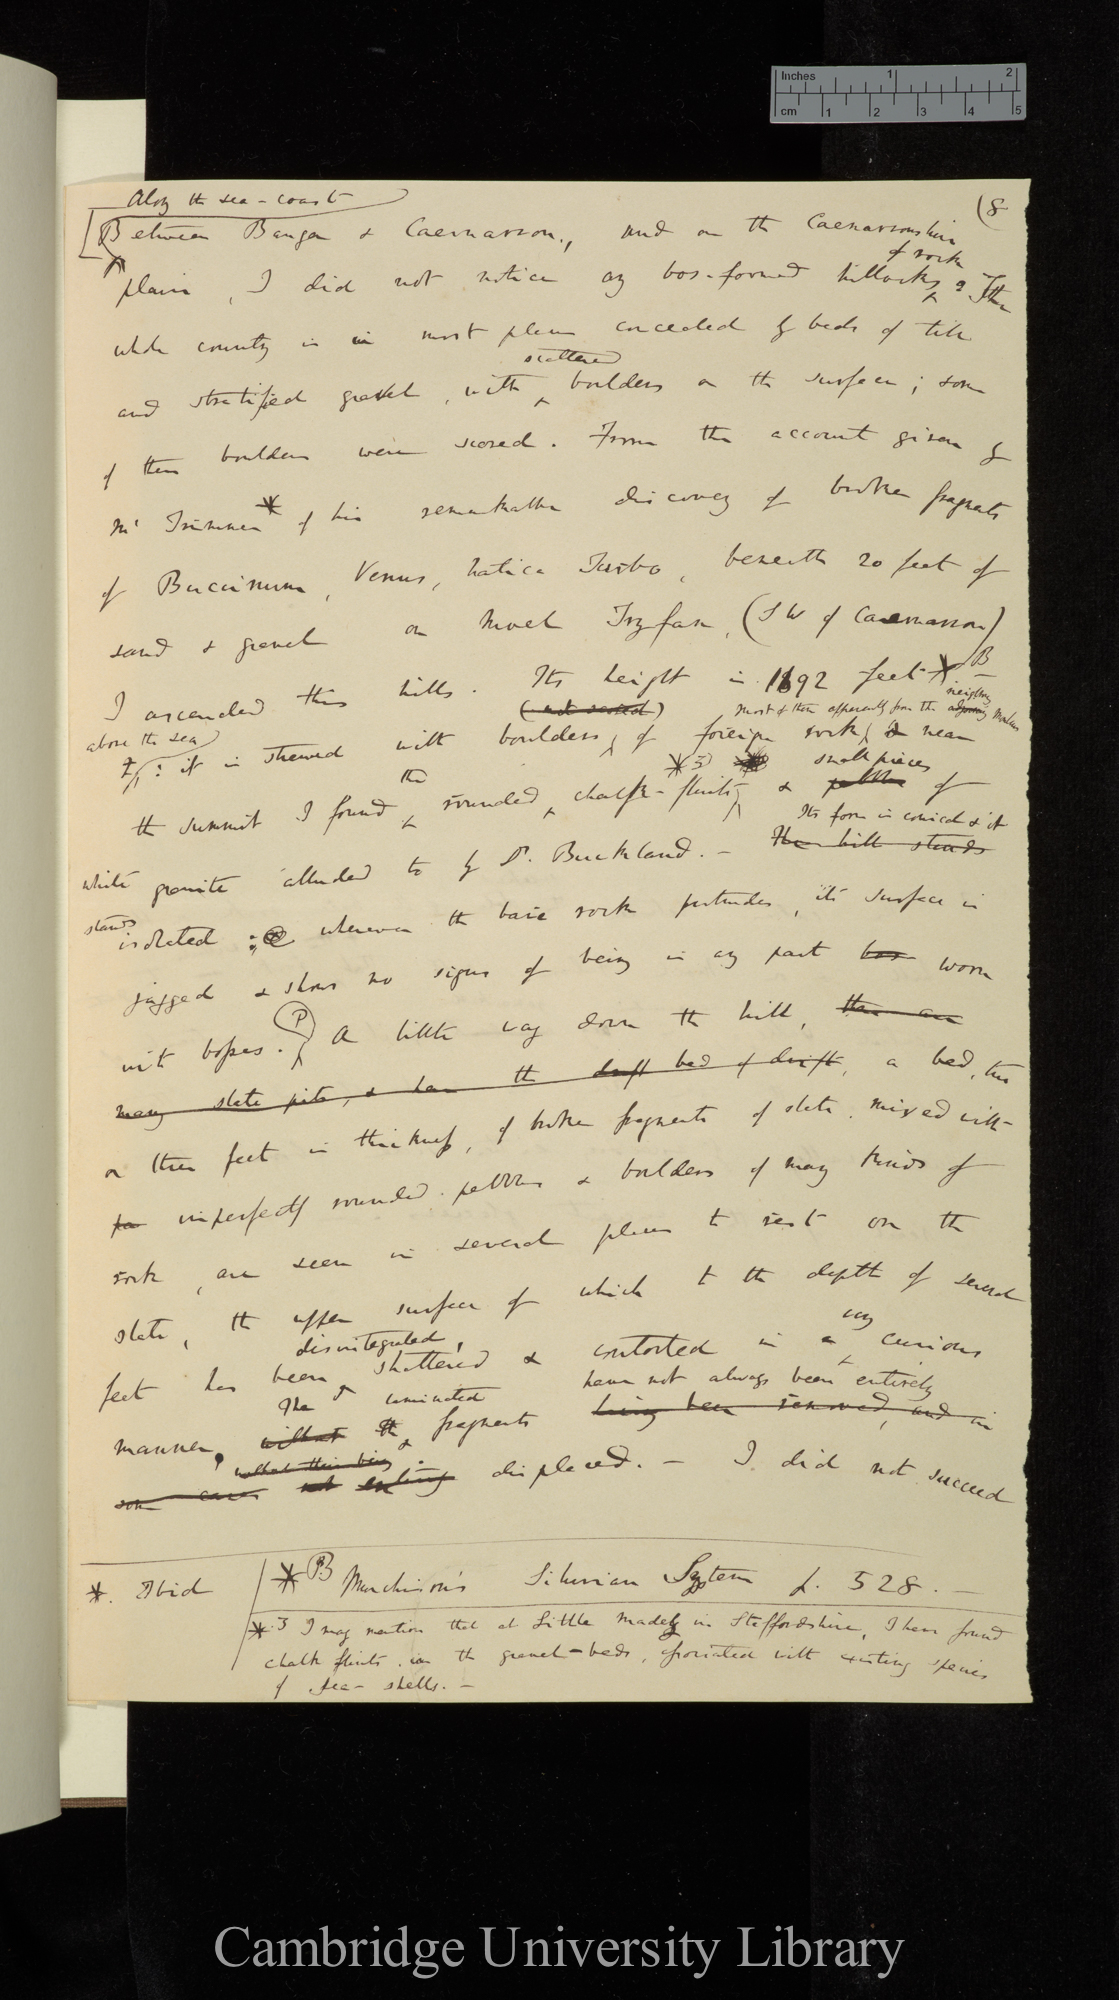 Inches 1 2
cm 1 2 3 4 5
(8
Along the sea-coast
Between Bangor & Caernarvon, and on the Caernarvonshire
of rock
plain, I did not notice any boss-formed hillocks. The
whole country is in most places concealed by beds of till
scattered
and stratified gravel, with boulders on the surface; some
of these boulders were scored. From the account given by
Mr Trimmer * of his remarkable discovery of broken fragments
of Buccinum, Venus, Natica Turbo, beneath 20 feet of
sand & gravel on Moel Tryfan, (SW of Caernarvon)
I ascended this hill. Its height is 1192 feet * B
(not scored) most of them apparently from the neighbring adjoining mountains
above the sea; it is strewed with boulders of foreign rock, near
the *3 small pieces
the summit I found rounded chalk-flints, & pebbles of
Its form is conical & it
white granite alluded to by Dr. Buckland. — The hill stands
stands isolated; wherever the bare rock protrudes, its surface is
jagged & shows no signs of being in any part worn
into bosses. (P) A little way down the hill, there are
many slate pits, & here the bed of drift, a bed, two
or three feet in thickness, of broken fragments of slate mixed with
imperfectly rounded pebbles & boulders of many kinds of
rock, are seen in several places to rest on the
slate, the upper surface of which to the depth of several
disintegrated, very
feet has been shattered & contorted in a curious
The laminated have not always been entirely
manner, without the fragments having been removed, and in
without their being
some cases not entirely displaced. — I did not succeed
*. Ibid
* B Murchison's Silurian System p. 528. —
*3 I may mention that at Little Madely in Staffordshire, I have found
chalk flints in the gravel-beds, associated with existing species
of sea-shells. —
Cambridge University Library